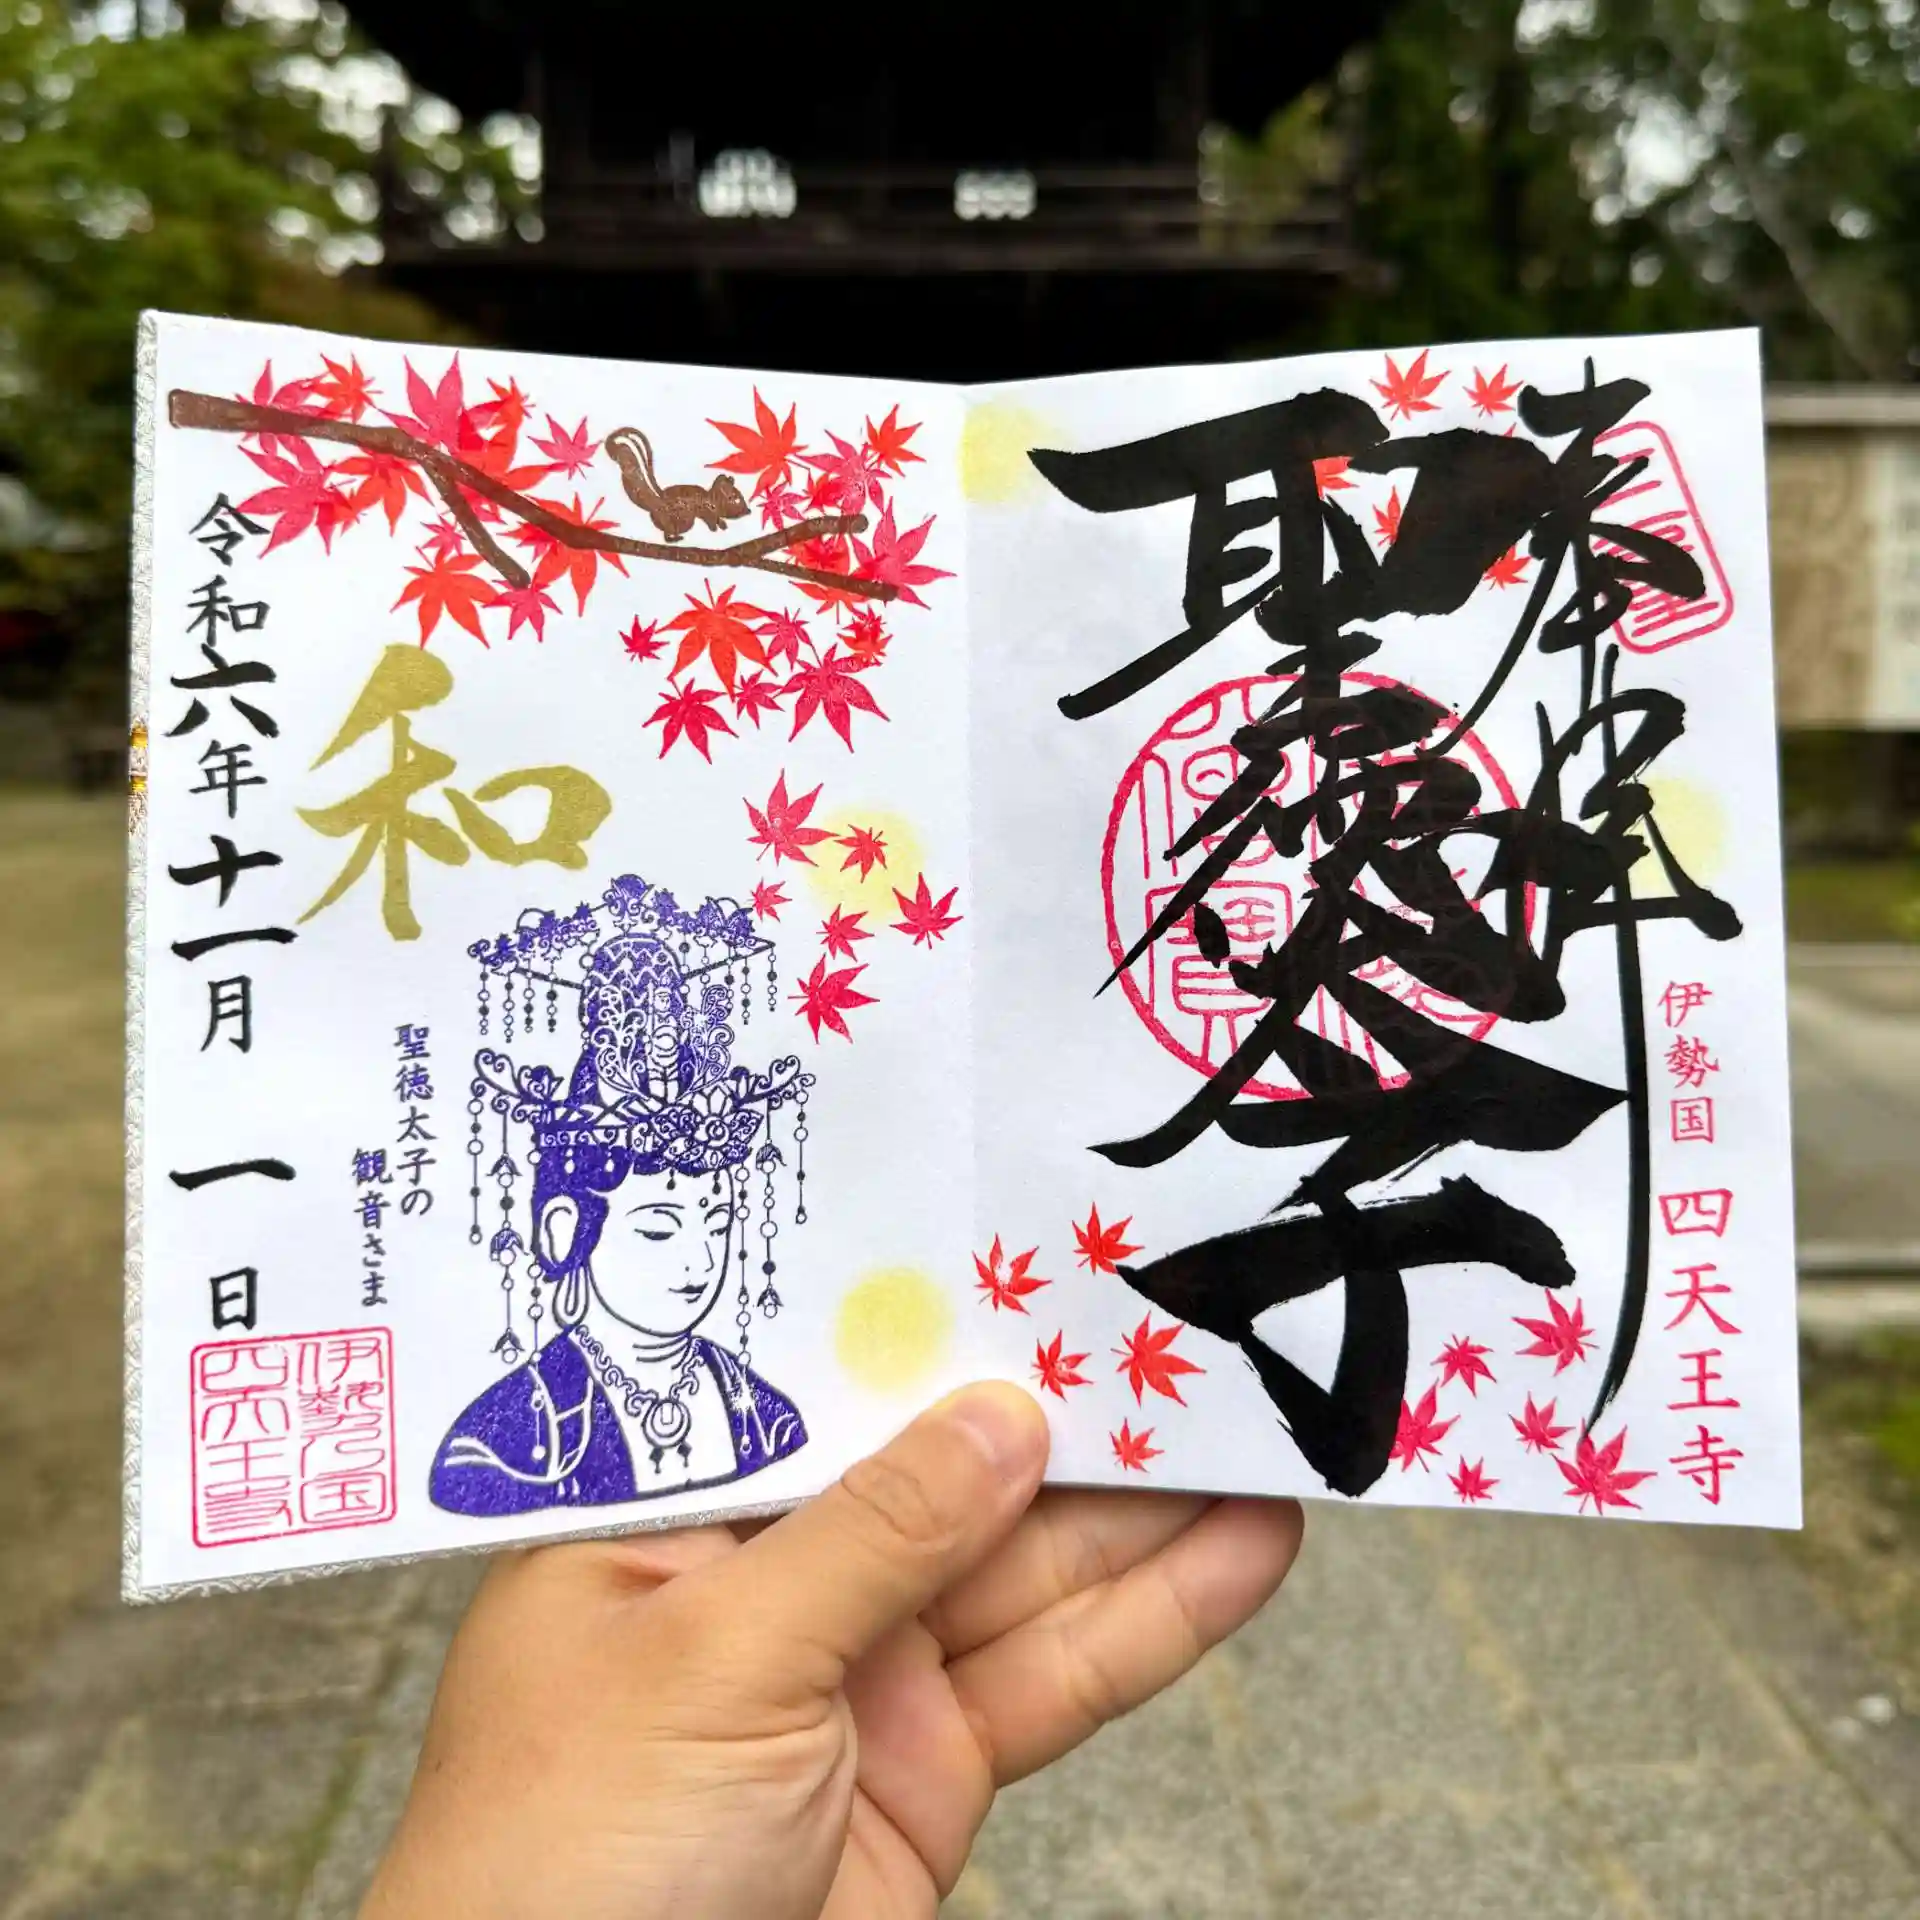 奉拝
聖徳太子
伊勢国 四天王寺
和
聖徳太子の
観音さま
令和六年十一月 一 日
伊勢之国
四天王寺